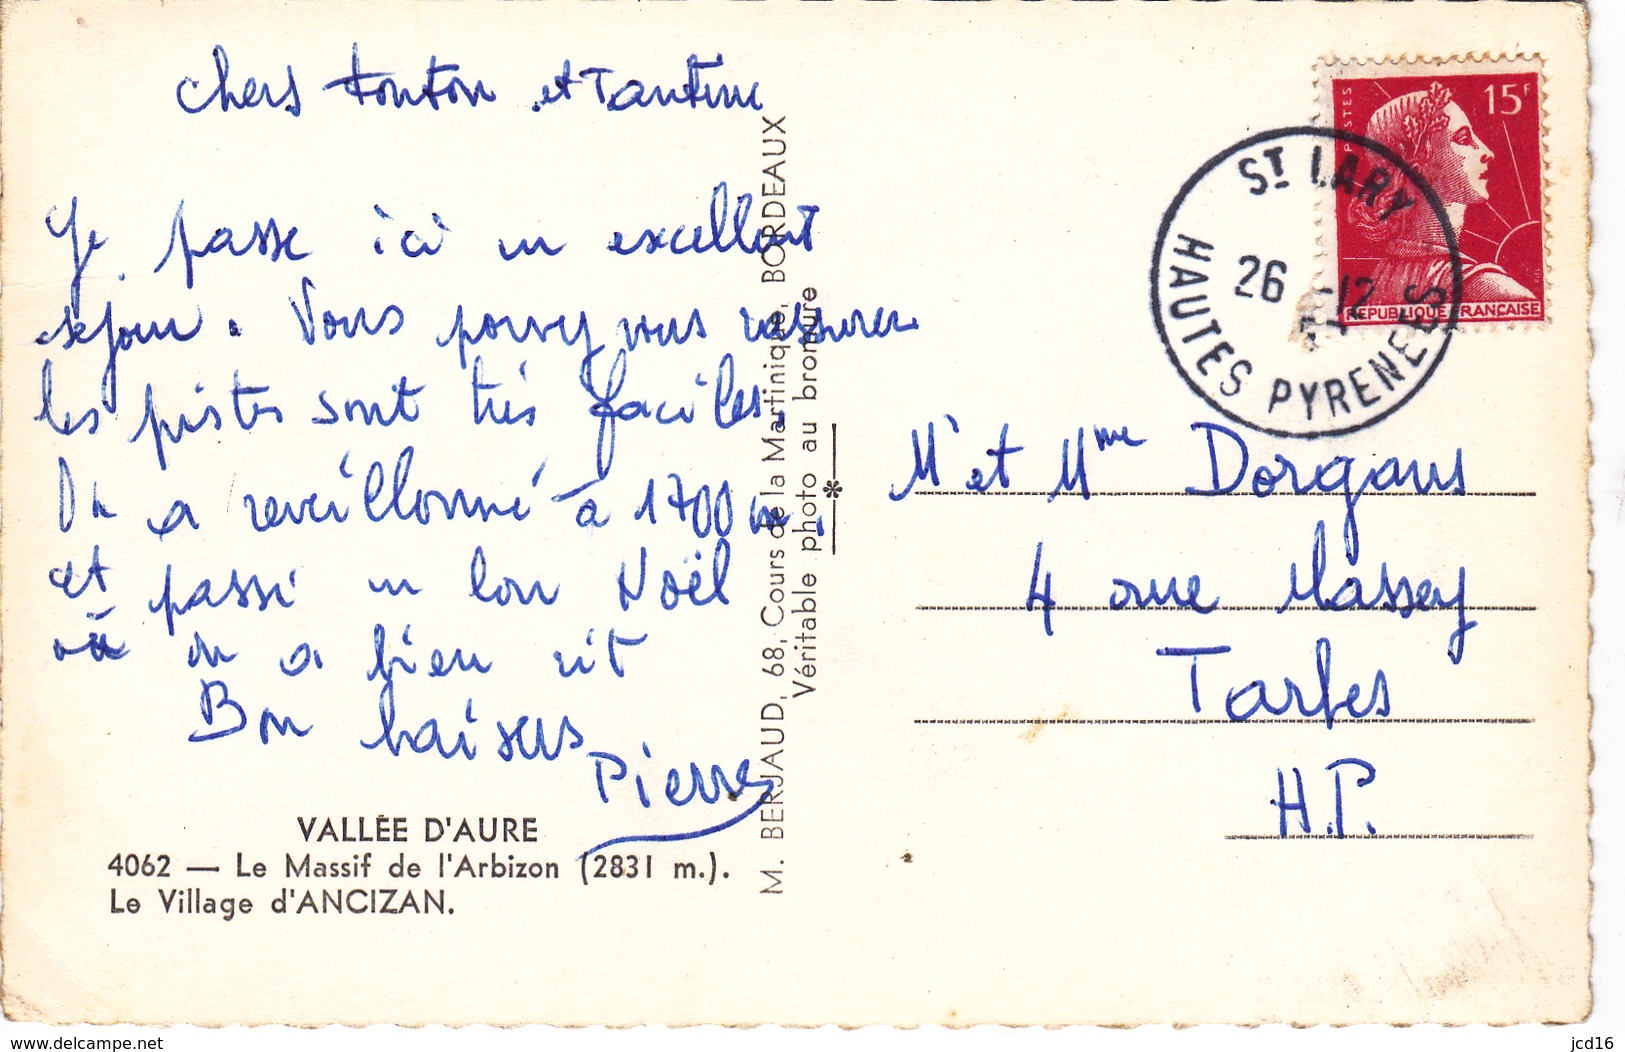 Chers tonton et Tantine
Je passe ici un excellent
séjour. Vous pouvez vous rassurer
les pistes sont très faciles.
On a reveillonné à 1700 m.
et passé un bon Noël
où on a bien rit
Bon baisers
Pierre
VALLÉE D'AURE
4062 — Le Massif de l'Arbizon (2831 m.).
Le Village d'ANCIZAN.
M. BERJAUD, 68, Cours de la Martinique, BORDEAUX
Véritable photo au bromure
POSTES
15F
REPUBLIQUE FRANÇAISE
ST LARY
26
12
HAUTES PYRENEES
Mr et Mme Dorgans
4 rue Massey
Tarbes
H.P.
www.delcampe.net
jcd16